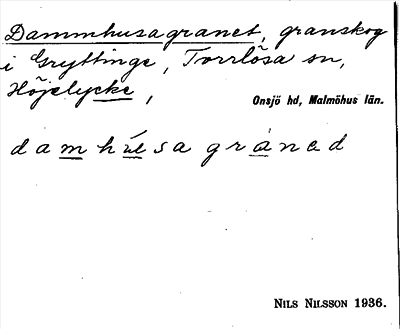 Dammhusagranet, granskog
i Gryttinge, Torrlösa sn,
Höjelycke,
Onsjö hd, Malmöhus län.
damhusagraned
NILS NILSSON 1936.